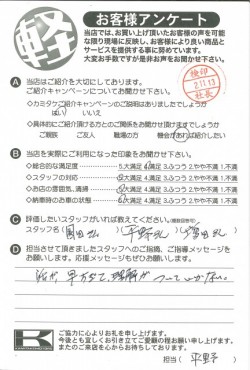 軽
お客様アンケート
当店では、お買い上げ頂いたお客様の声を可能
な限り現場に反映し、お客様により良い商品と
サービスを提供する事に努めています。
大変お手数ですが是非お声をお聞かせ下さい。
検印
社長
A 当店はご紹介を大切にしております。
ご紹介キャンペーンについてお聞かせ下さい。
・カミタケご紹介キャンペーンのお知らせはありましたでしょうか
はい いいえ
・具体的にご紹介頂ける方とのご関係をお聞き頂けますでしょうか
ご親族 ご友人 職場の方 機会があれば紹介したい
B 当店を実際にご利用になった印象をお聞かせ下さい。
・総合的な満足度 5.大満足 4.満足 3.ふつう 2.やや不満 1.不満
・スタッフの対応 5.大満足 4.満足 3.ふつう 2.やや不満 1.不満
・お店の雰囲気、清掃 5.大満足 4.満足 3.ふつう 2.やや不満 1.不満
・納車時のお車の状態 5.大満足 4.満足 3.ふつう 2.やや不満 1.不満
C 評価したいスタッフがいれば教えてください。(複数回答可)
スタッフ名
D 担当させて頂きましたスタッフへのご指摘、ご指導メッセージを
お願いします。応援メッセージもぜひお願いします。
K
ご協力に心よりお礼を申し上げます。
今後とも宜しくお引き立てご愛顧の程お願い申し上げます。
またのご来店を心からお待ちしております。
担当( 平野 )